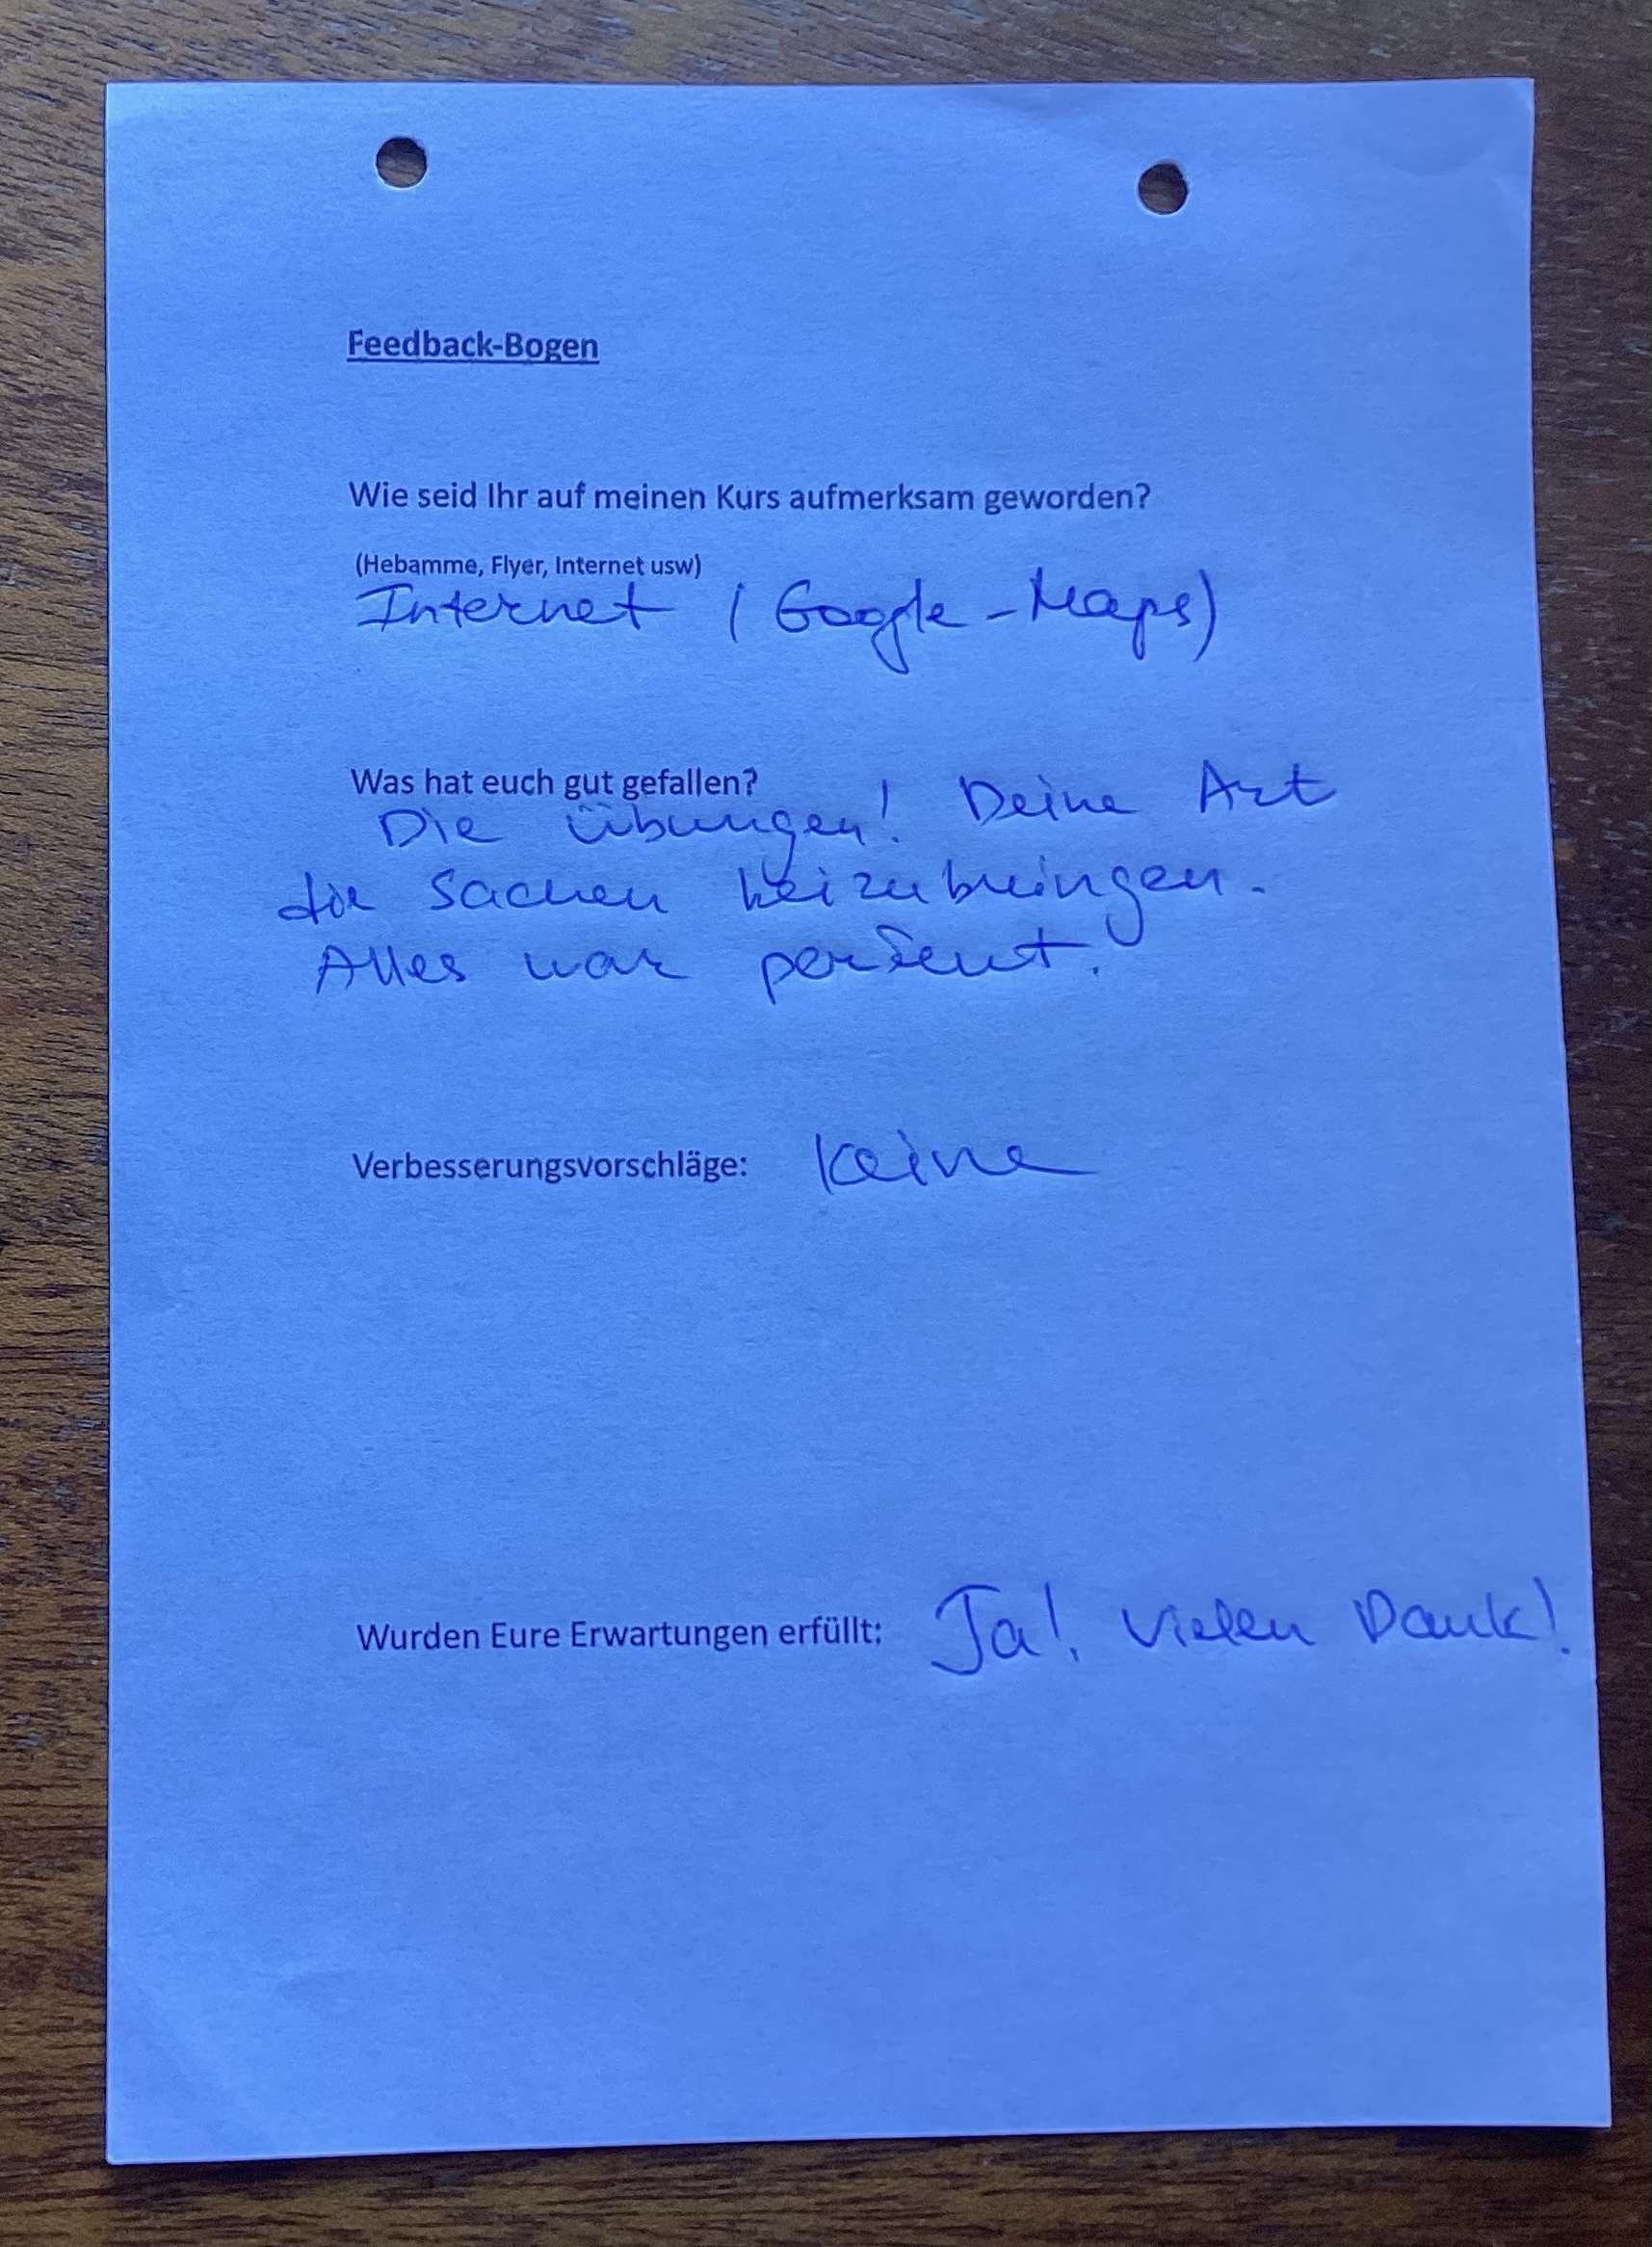 Feedback-Bogen
Wie seid Ihr auf meinen Kurs aufmerksam geworden?
(Hebamme, Flyer, Internet usw)
Internet (Google-Maps)
Was hat euch gut gefallen?
Die Übungen! Deine Art
die Sachen beizubringen.
Alles war perfekt.
Verbesserungsvorschläge: Keine
Wurden Eure Erwartungen erfüllt: Ja! Vielen Dank!